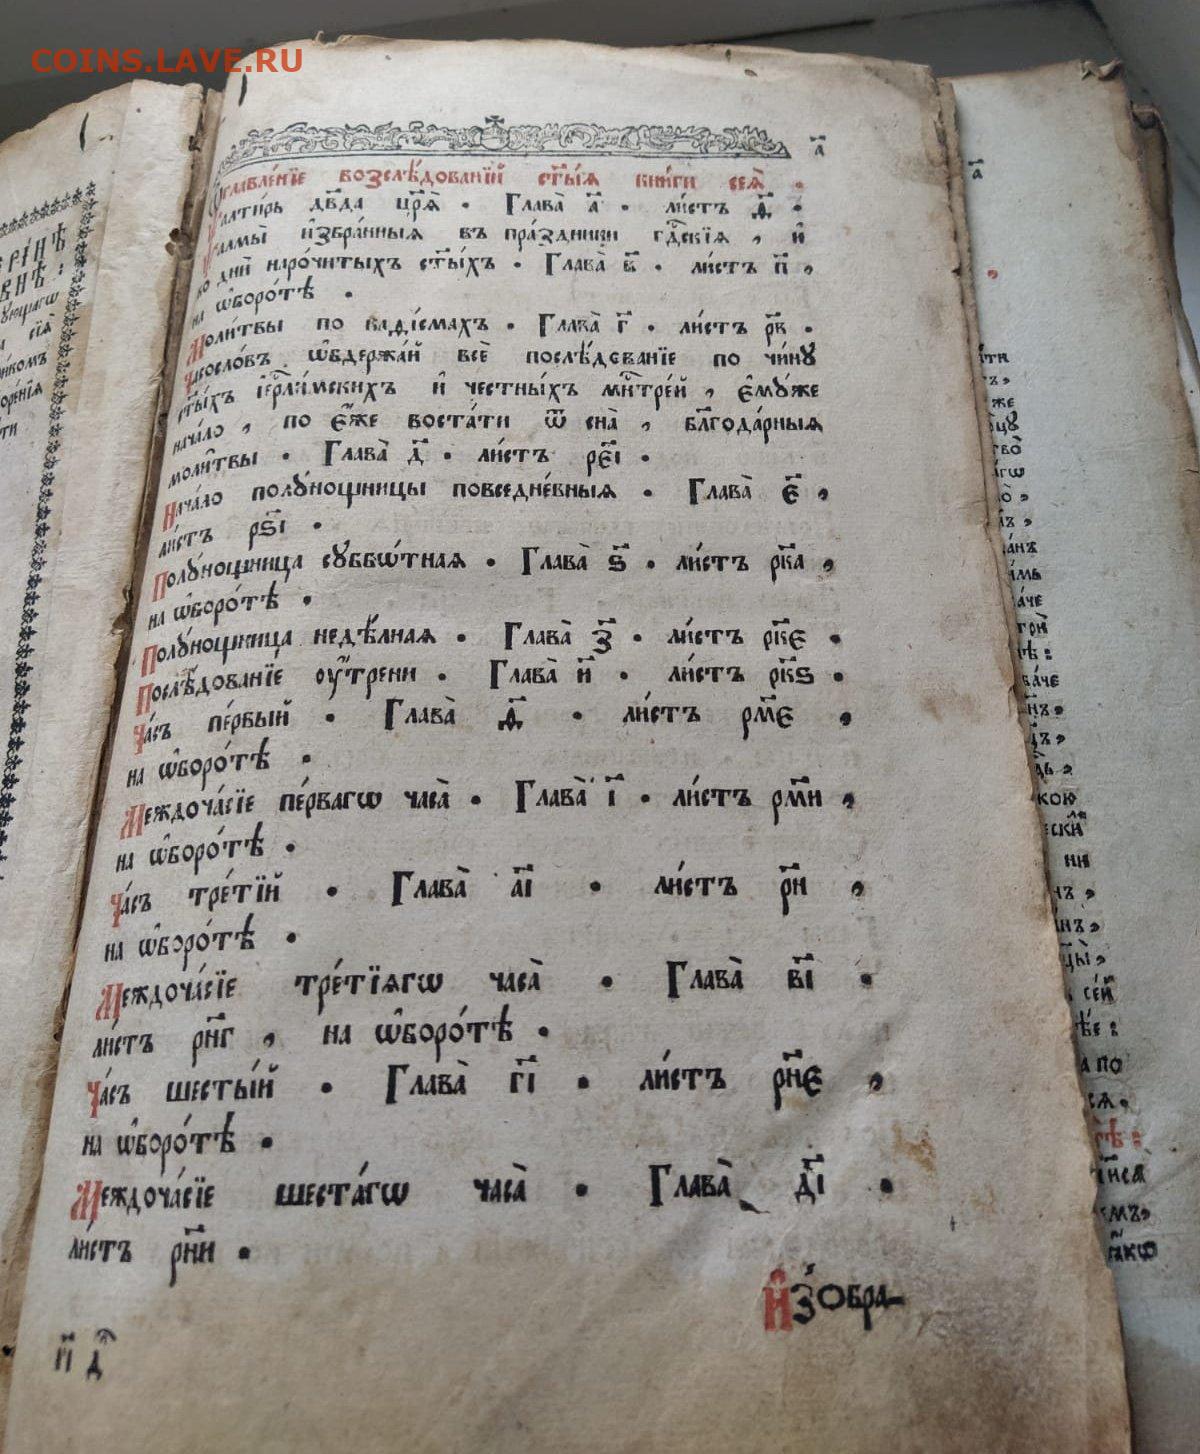 COINS.LAVE.RU
҃а
Ѡглавле́нїе возслѣ́дованїй ст҃ы́ѧ кни́ги сеѧ̀ .
Ѱалти́рь дв҃да цр҃ѧ̀ . Глава̀ а҃ . ли́стъ д҃ .
Ѱалмы̀ и҆збра́нныѧ въ пра́здники гд҃скїѧ , и҆
во дни̑ наро́читыхъ ст҃ы́хъ . Глава̀ в҃ . ли́стъ п҃ ,
на ѡ҆боро́тѣ .
Моли́твы по каѳі́смахъ . Глава̀ г҃ . ли́стъ р҃в .
Часосло́въ ѡ҆бдержа́й всѐ послѣ́дованїе по чи́нꙋ
ст҃ы́хъ і҆ерⷭ҇ли́мскихъ и҆ честны́хъ мн҃тре́й , є҆мꙋ́же
нача́ло , по є҆́же воста́ти ѿ сна̀ , бл҃года́рныѧ
моли̑твы . Глава̀ д҃ . ли́стъ ре҃і .
Нача́ло полꙋно́щницы повседне́вныѧ . Глава̀ є҃ ,
ли́стъ рѕ҃і .
Полꙋно́щница сꙋббѡ́тнаѧ . Глава̀ ѕ҃ . ли́стъ рк҃а ,
на ѡ҆боро́тѣ .
Полꙋно́щница недѣ́лнаѧ . Глава̀ з҃ . ли́стъ рк҃є .
Послѣ́дованїе оу҆́трени . Глава̀ и҃ . ли́стъ рк҃ѕ .
Ча́съ пе́рвый . Глава̀ ѳ҃ . ли́стъ рм҃є ,
на ѡ҆боро́тѣ .
Междоча́сїе пе́рвагѡ часа̀ . Глава̀ і҃ . ли́стъ рм҃и ,
на ѡ҆боро́тѣ .
Ча́съ тре́тїй . Глава̀ а҃і . ли́стъ р҃н ,
на ѡ҆боро́тѣ .
Междоча́сїе тре́тїѧгѡ часа̀ . Глава̀ в҃і .
ли́стъ рн҃г , на ѡ҆боро́тѣ .
Ча́съ шесты́й . Глава̀ г҃і . ли́стъ рн҃є ,
на ѡ҆боро́тѣ .
Междоча́сїе шеста́гѡ часа̀ . Глава̀ д҃і .
ли́стъ рн҃и .
И҆зобра-